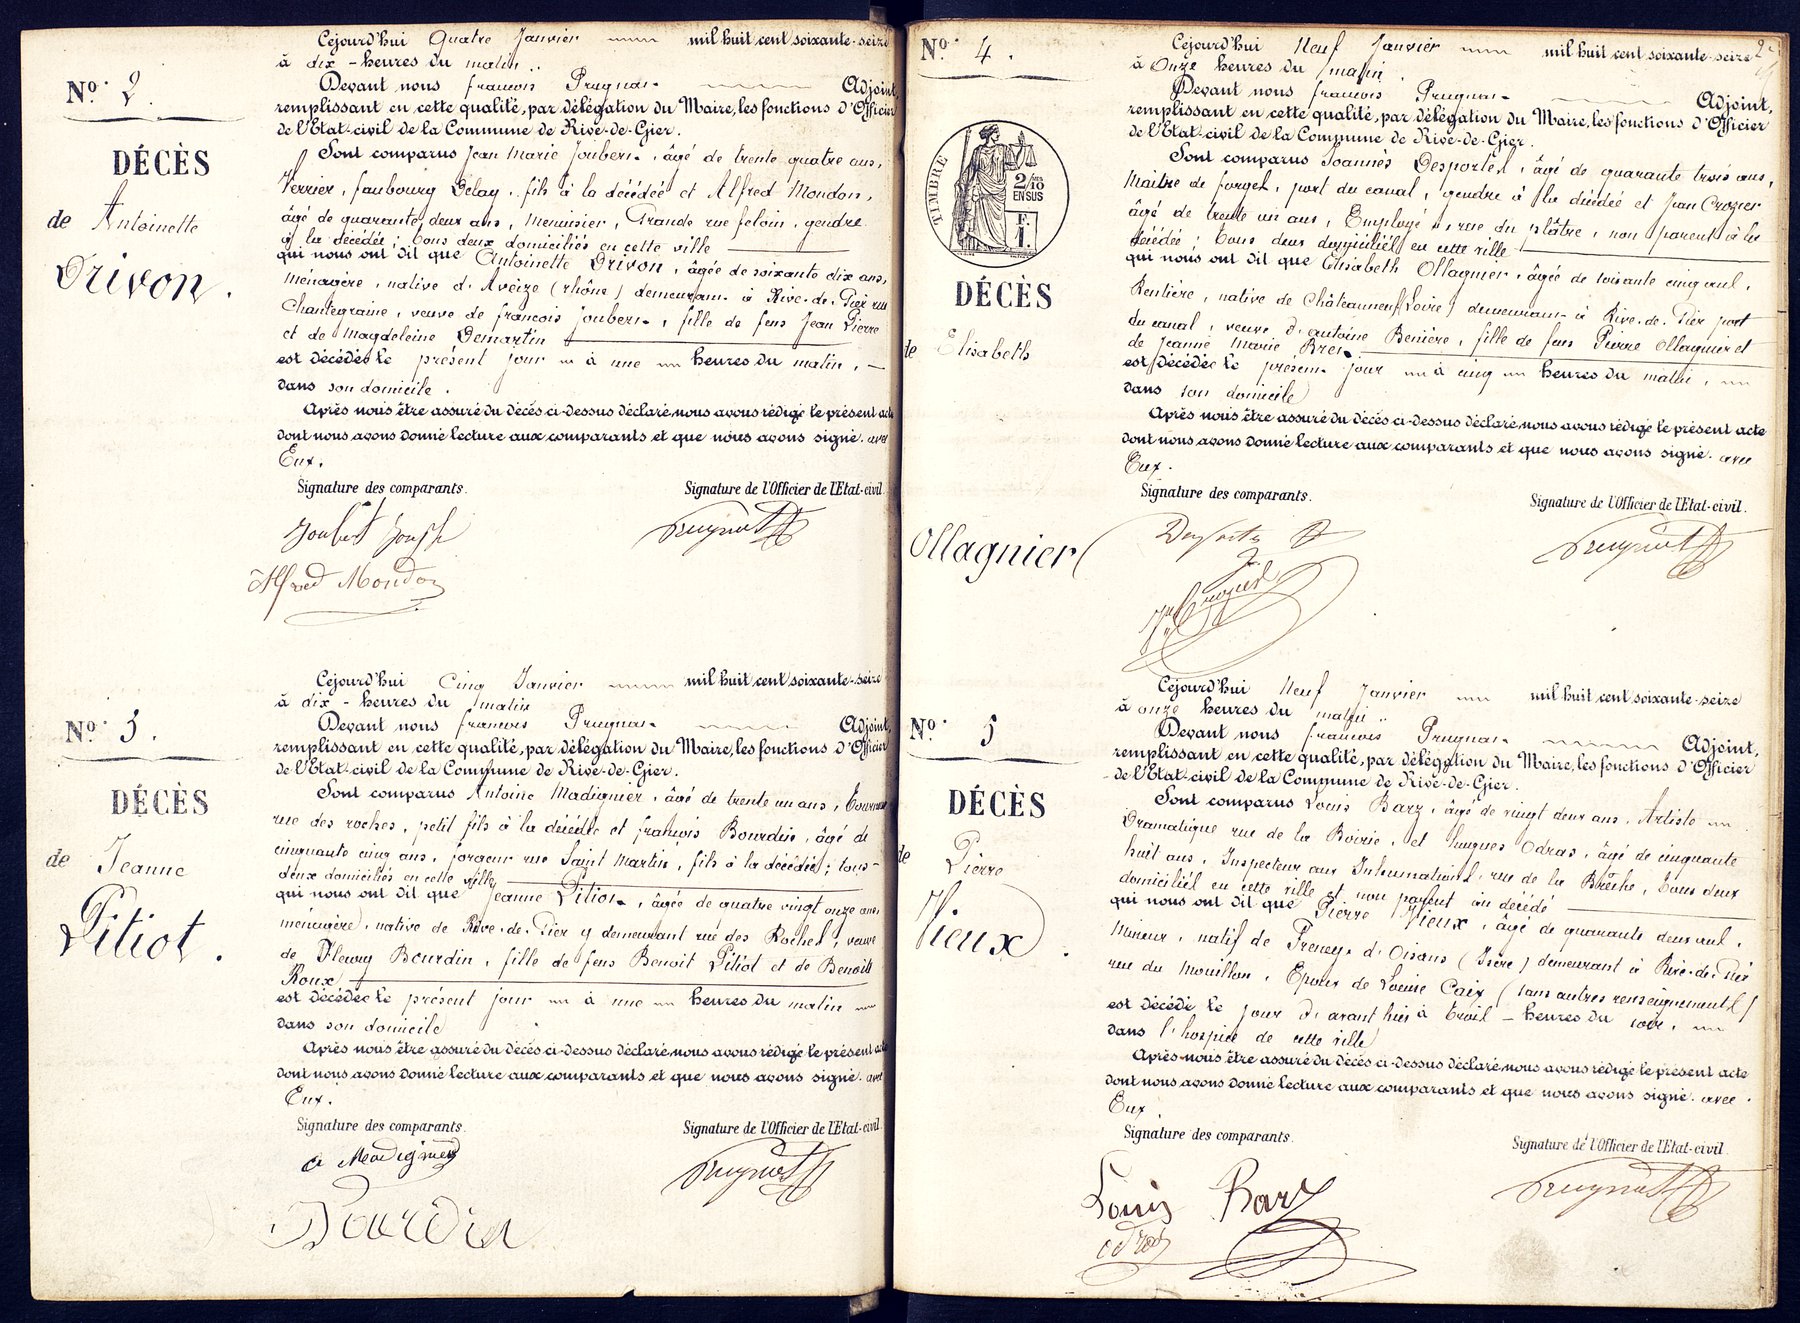 Nº. 2.
DÉCÈS
de Antoinette
Drivon.
Cejourd'hui Quatre Janvier mil huit cent soixante-seize
à dix - heures du matin..
Devant nous francois Prugnat Adjoint,
remplissant en cette qualité, par délégation du Maire, les fonctions d'Officier
de l'Etat-civil de la Commune de Rive-de-Gier.
Sont comparus Jean Marie Joubert, âgé de trente quatre ans,
Verrier, faubourg Delay, fils à la décédée et Alfred Mondon,
âgé de quarante deux ans, Menuisier, Grande rue feloin, gendre
à la décédée; tous deux domiciliés en cette ville
qui nous ont dit que Antoinette Drivon, âgée de soixante dix ans,
Ménagère, native d'Aveize (rhône) demeurant à Rive-de-Gier rue
Chantegraine, veuve de francois Joubert, fille de feus Jean Pierre
et de Magdeleine Demartin
est décédée le présent jour à une heures du matin,
dans son domicile.
Après nous être assuré du décès ci-dessus déclaré, nous avons rédigé le présent acte
dont nous avons donné lecture aux comparants et que nous avons signé. avec
Eux.
Signature des comparants. Signature de l'Officier de l'Etat-civil.
Joubert Joseph Prugnat
Alfred Mondon
Nº. 3.
DÉCÈS
de Jeanne
Pitiot.
Cejourd'hui Cinq Janvier mil huit cent soixante-seize
à dix - heures du matin
Devant nous francois Prugnat Adjoint,
remplissant en cette qualité, par délégation du Maire, les fonctions d'Officier
de l'Etat-civil de la Commune de Rive-de-Gier.
Sont comparus Antoine Madignier, âgé de trente un ans,
rue des roches, petit fils à la décédée et françois Bourdin, âgé de
cinquante cinq ans, forgeur rue Saint Martin, fils à la décédée; tous
deux domiciliés en cette ville
qui nous ont dit que Jeanne Pitiot, âgée de quatre vingt onze ans
ménagère, native de Rive-de-Gier y demeurant rue des Roches, veuve
de Fleury Bourdin, fille de feus Benoit Pitiot et de Benoite
Roux
est décédée le présent jour à une heures du matin
dans son domicile
Après nous être assuré du décès ci-dessus déclaré, nous avons rédigé le présent acte
dont nous avons donné lecture aux comparants et que nous avons signé. avec
Eux.
Signature des comparants. Signature de l'Officier de l'Etat-civil.
a Madignier Prugnat
Bourdin
Nº. 4.
TIMBRE
2/10
EN SUS
F.
1.
DÉCÈS
de Elisabeth
Ollagnier
Cejourd'hui Neuf Janvier mil huit cent soixante-seize
à Onze heures du matin.
Devant nous francois Prugnat Adjoint,
remplissant en cette qualité, par délégation du Maire, les fonctions d'Officier
de l'Etat-civil de la Commune de Rive-de-Gier.
Sont comparus Joannès Desportes, âgé de quarante trois ans,
Maître de forges, port du canal, gendre à la décédée et Jean Crozier
âgé de trente un ans, Employé, rue du plâtre, non parent à la
décédée; tous deux domiciliés en cette ville
qui nous ont dit que Elisabeth Ollagnier, âgée de soixante cinq ans,
Rentière, native de Châteauneuf (Loire) demeurant à Rive-de-Gier port
du canal, veuve d'antoine Benière, fille de feus Pierre Ollagnier et
de Jeanne Marie
est décédée le présent jour à cinq heures du matin,
dans son domicile
Après nous être assuré du décès ci-dessus déclaré, nous avons rédigé le présent acte
dont nous avons donné lecture aux comparants et que nous avons signé. avec
Eux.
Signature des comparants. Signature de l'Officier de l'Etat-civil.
Desportes Prugnat
Jn Crozier
Nº. 5
DÉCÈS
de Pierre
Vieux.
Cejourd'hui Neuf Janvier mil huit cent soixante-seize
à onze heures du matin..
Devant nous francois Prugnat Adjoint,
remplissant en cette qualité, par délégation du Maire, les fonctions d'Officier
de l'Etat-civil de la Commune de Rive-de-Gier.
Sont comparus Louis Barz, âgé de vingt deux ans, Artiste
Dramatique rue de la Boirie, et hugues Odras, âgé de cinquante
huit ans, Inspecteur aux Inhumations, rue de la Brêche, tous deux
domiciliés en cette ville et non parent au décédé
qui nous ont dit que Pierre Vieux, âgé de quarante deux ans,
Mineur, natif de Freney-d'Oisans (Isère) demeurant à Rive-de-Gier
rue du Mouillon, Epoux de Louise Caix (sans autres renseignements)
est décédé le jour d'avant hier à trois - heures du soir,
dans l'hospice de cette ville
Après nous être assuré du décès ci-dessus déclaré, nous avons rédigé le présent acte
dont nous avons donné lecture aux comparants et que nous avons signé. avec
Eux.
Signature des comparants. Signature de l'Officier de l'Etat-civil.
Louis Barz Prugnat
odras